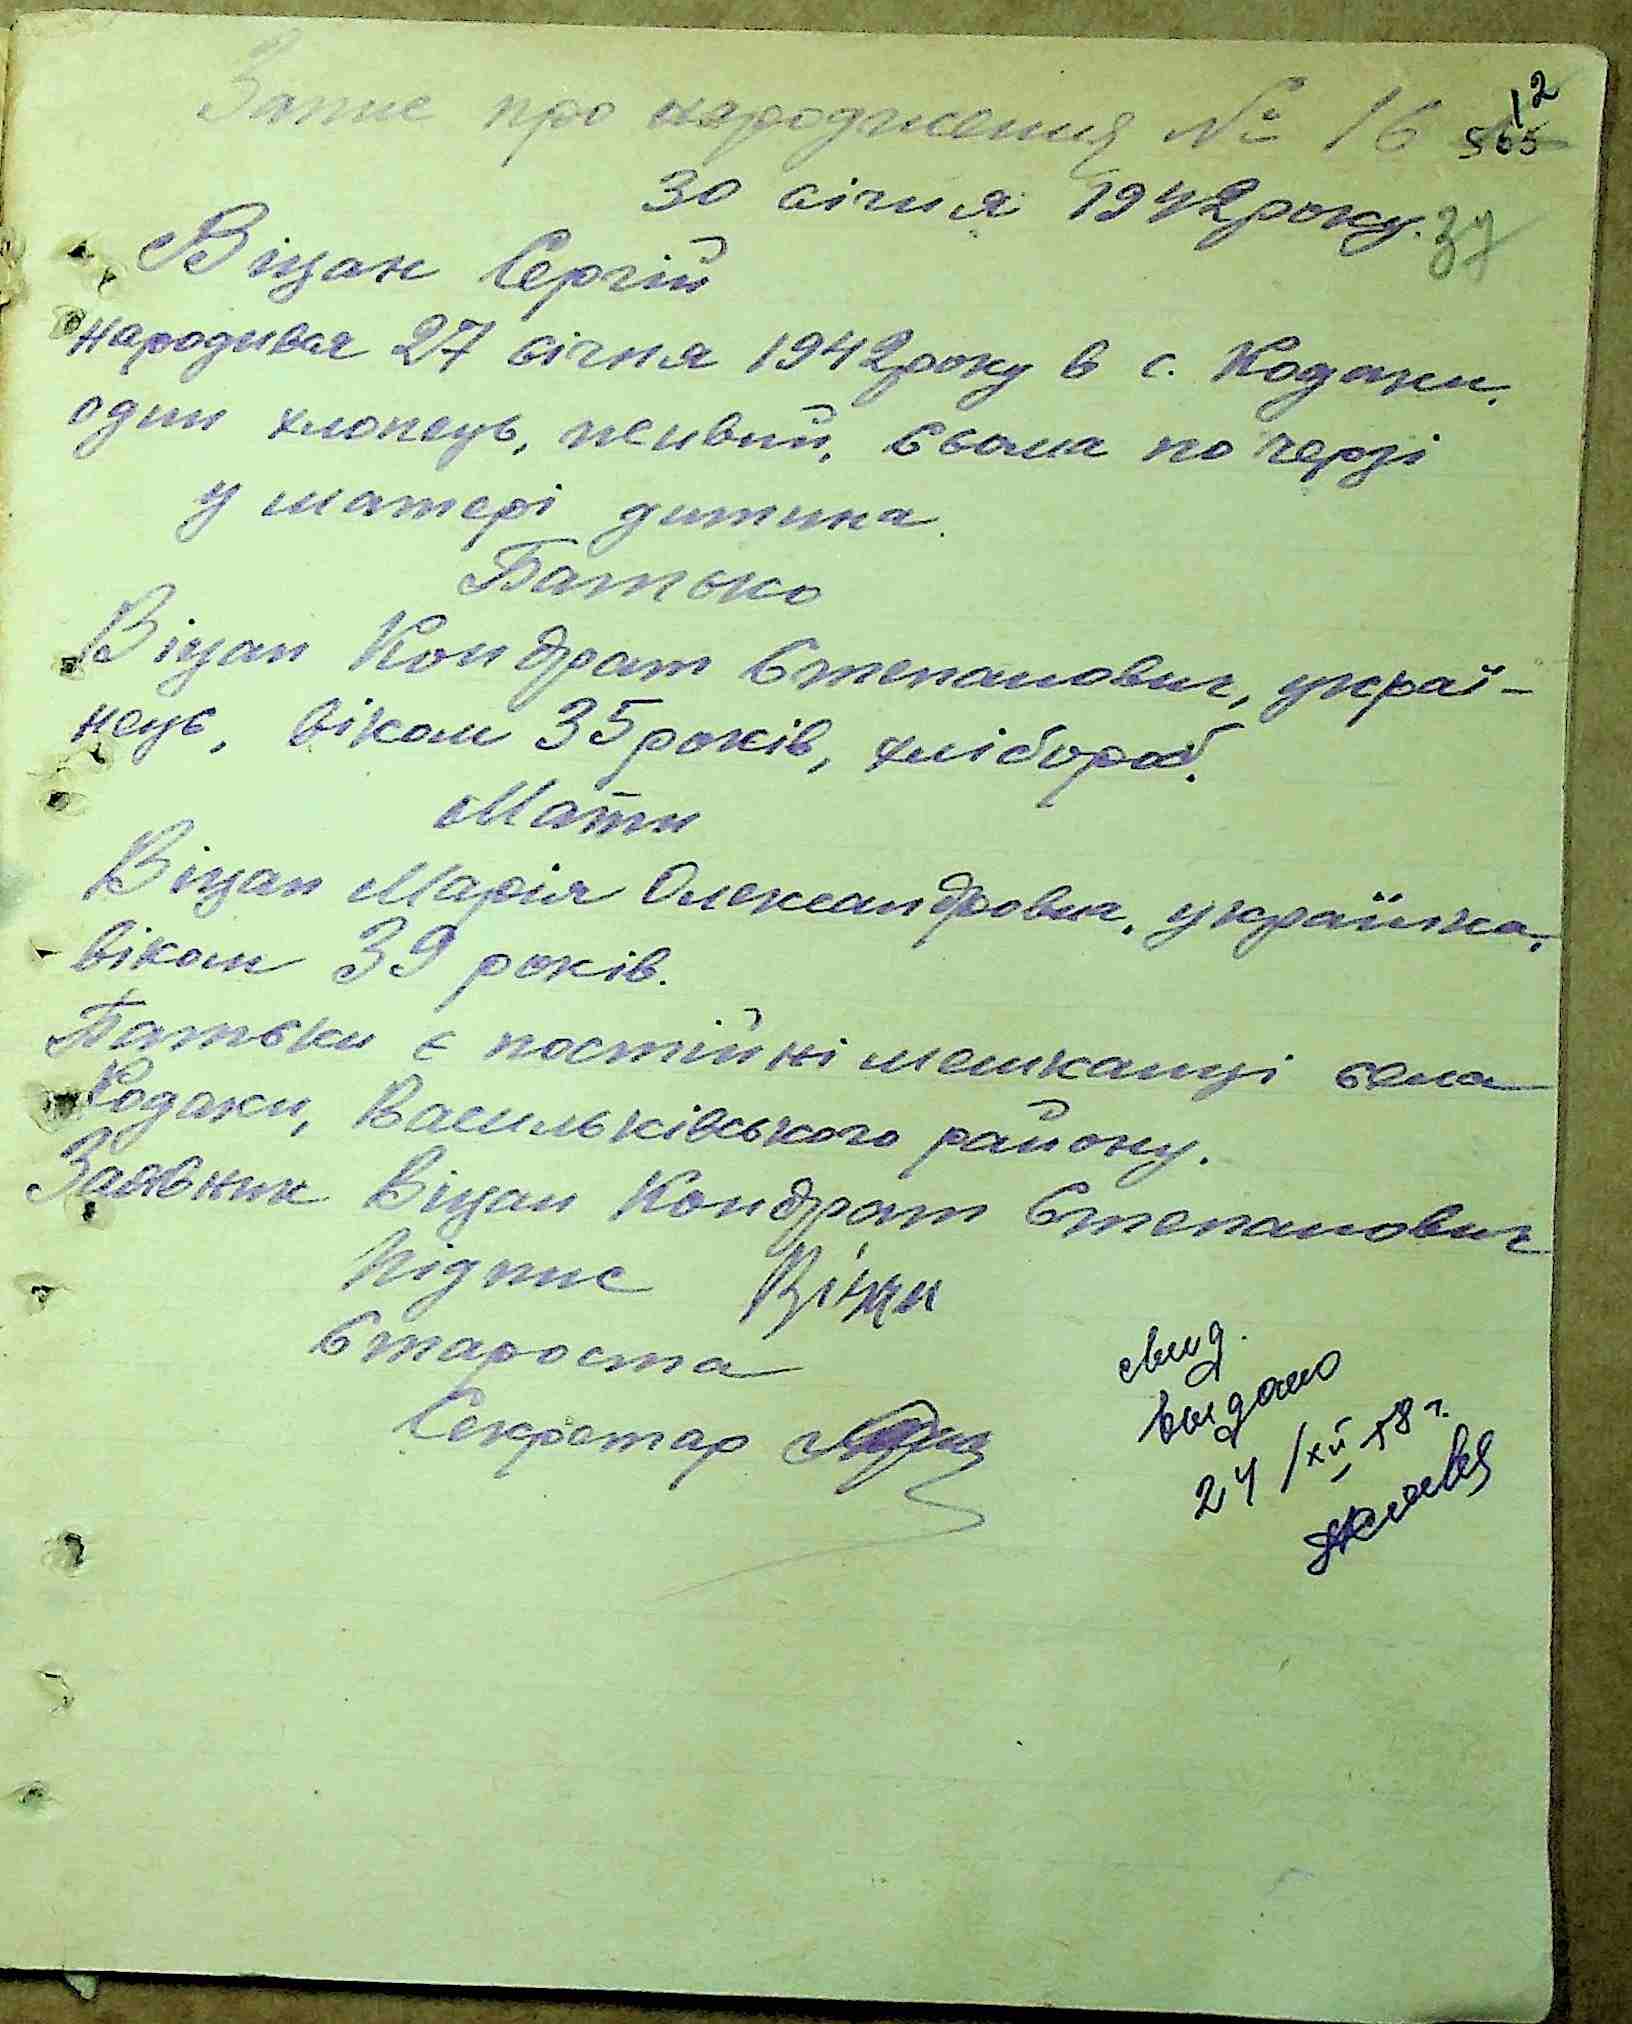 Запис про народження № 16
12
565
30 січня 1942 року.
37
Віцан Сергій
народився 27 січня 1942 року в с. Кодаки.
один хлопець, живий, сьома по черзі
у матері дитина.
Батько
Віцан Кондрат Степанович, украї-
нець, віком 35 років, хлібороб.
Мати
Віцан Марія Олександровна, українка,
віком 39 років.
Батьки є постійні мешканці села
Кодаки, Васильківського району.
Заявник Віцан Кондрат Степанович
Підпис Віцан
Староста
Секретар
свид.
выдано
24/XII-58 г.